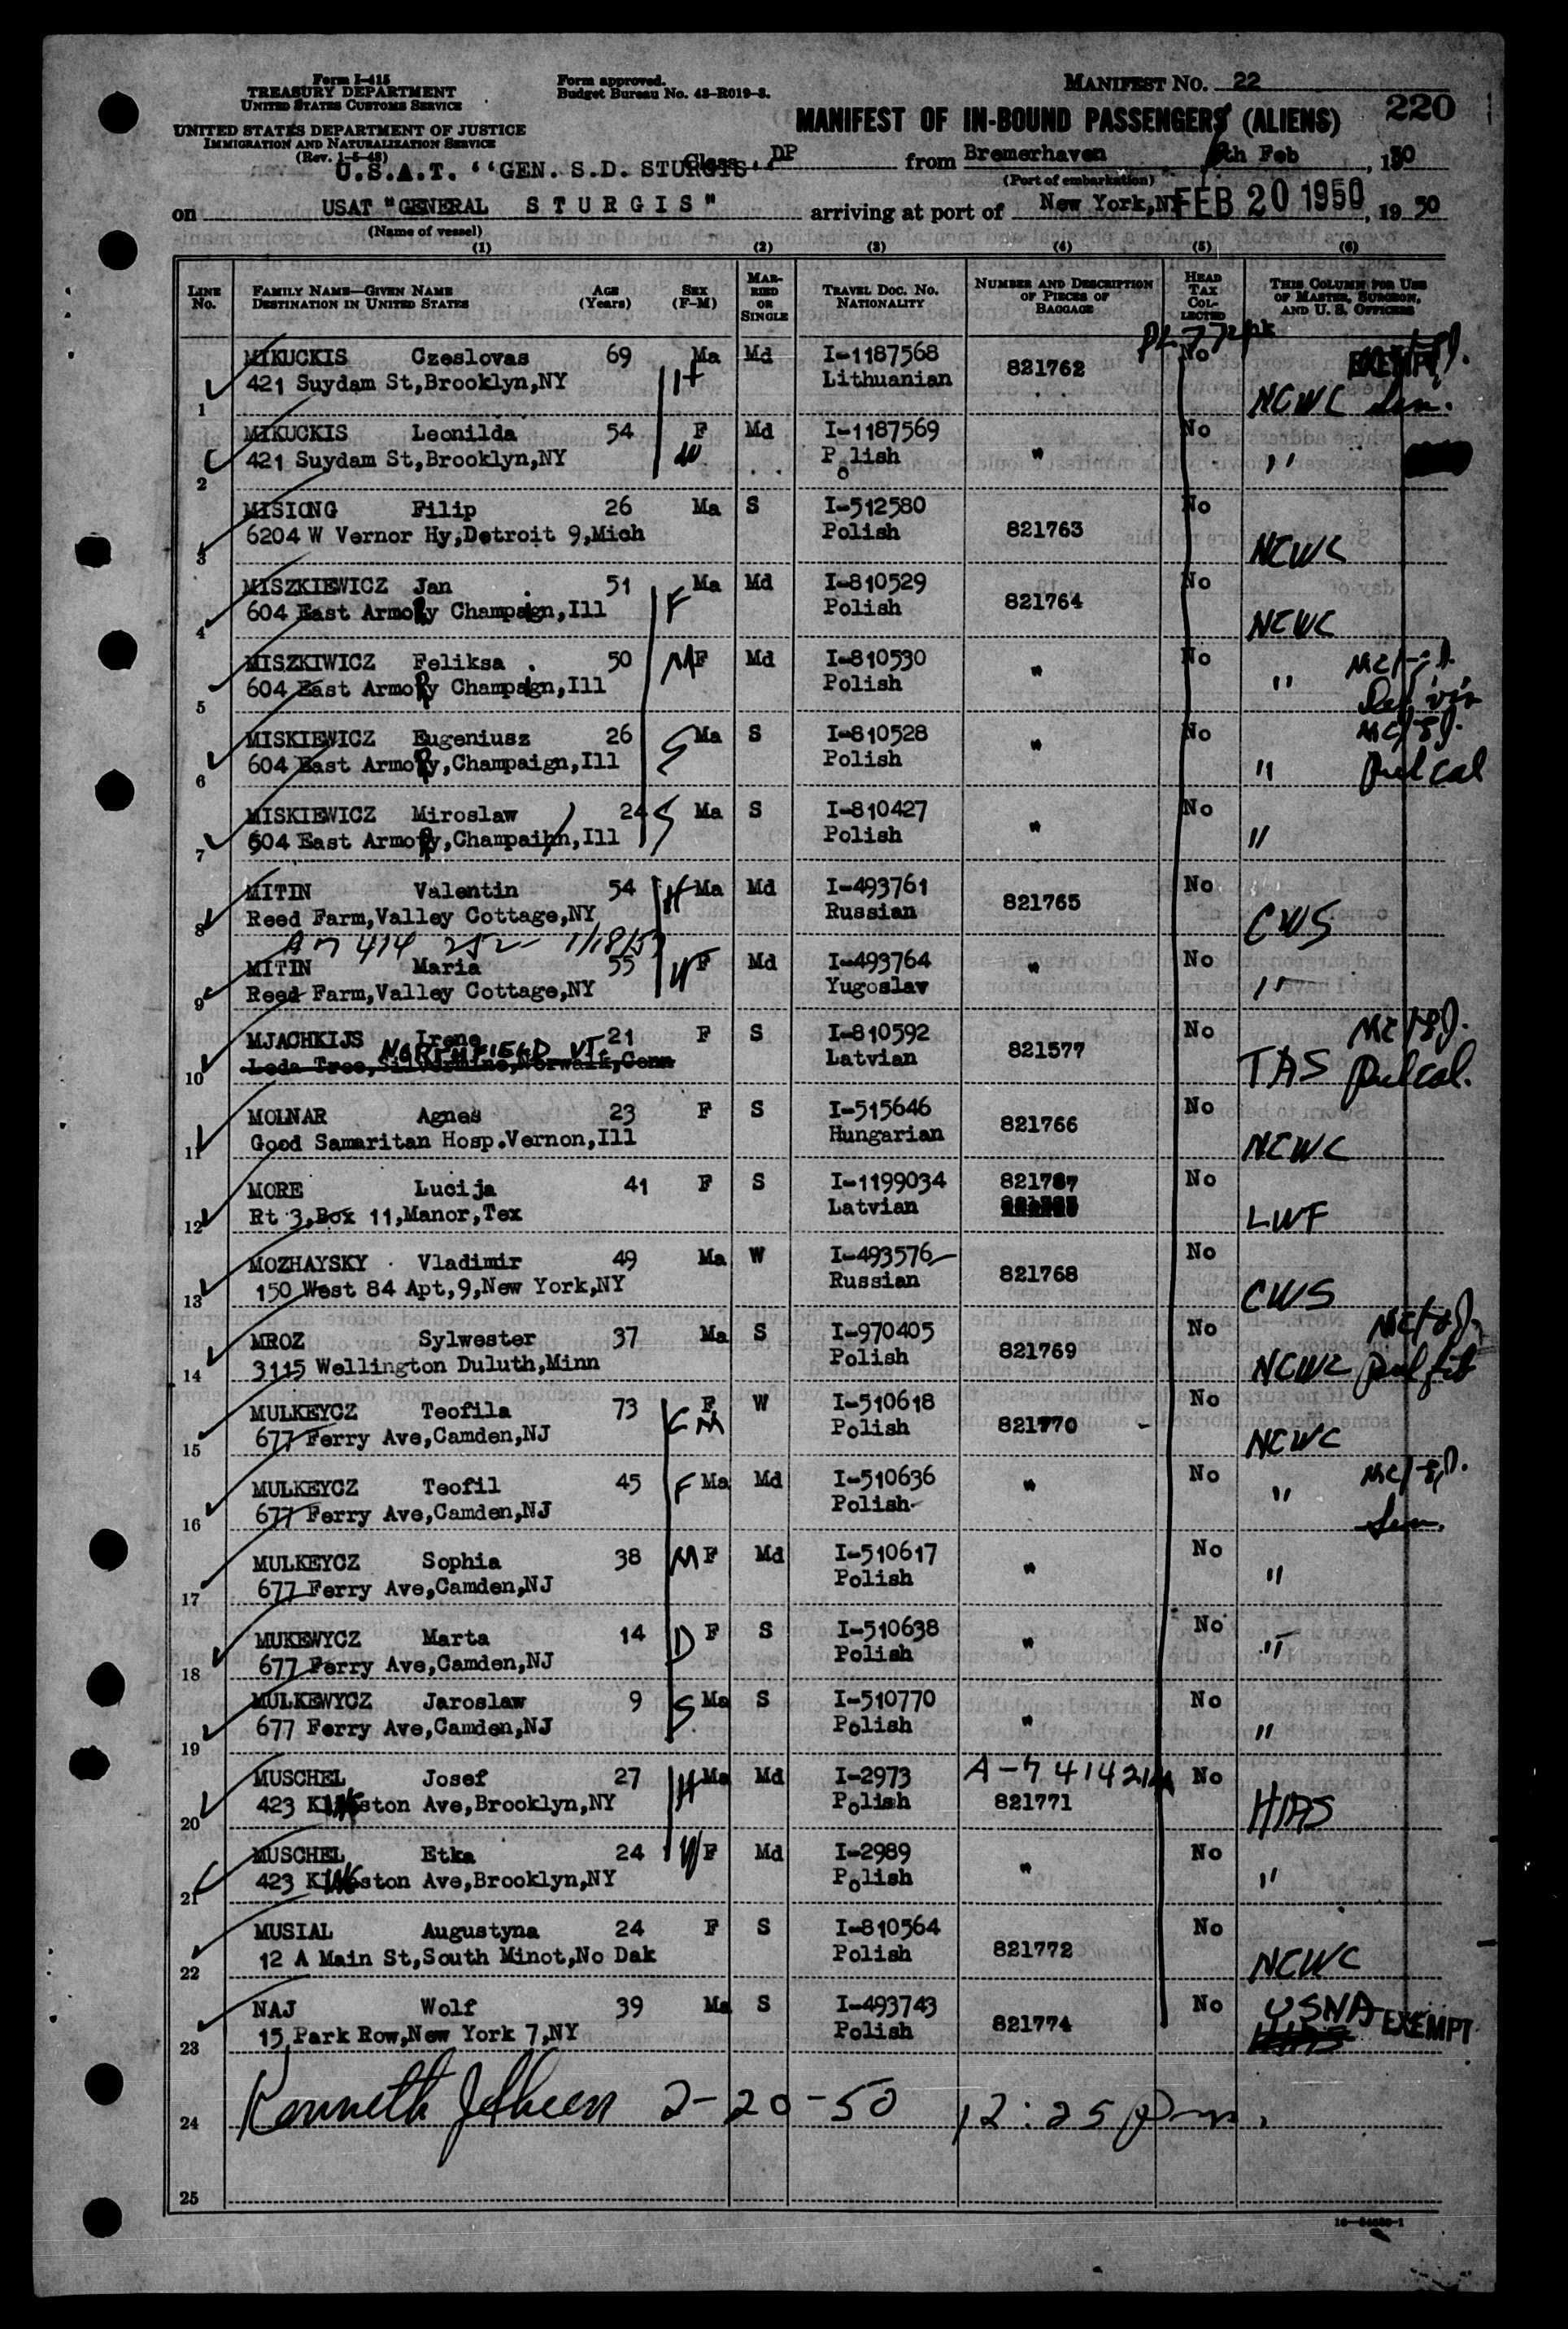 Form I-415
TREASURY DEPARTMENT
UNITED STATES CUSTOMS SERVICE
UNITED STATES DEPARTMENT OF JUSTICE
IMMIGRATION AND NATURALIZATION SERVICE
(Rev. 1-5-48)
Form approved.
Budget Bureau No. 43-R019-3.
MANIFEST NO. 22
220
MANIFEST OF IN-BOUND PASSENGERS (ALIENS)
U.S.A.T. "GEN. S.D. STURGIS"
Class DP from Bremerhaven th Feb , 1950
(Port of embarkation)
on USAT "GENERAL STURGIS" arriving at port of New York,NY FEB 20 1950 , 19 50
(Name of vessel)
(1) (2) (3) (4) (5) (6)
LINE NO. FAMILY NAME—GIVEN NAME DESTINATION IN UNITED STATES AGE (Years) SEX (F-M) MARRIED OR SINGLE TRAVEL DOC. NO. NATIONALITY NUMBER AND DESCRIPTION OF PIECES OF BAGGAGE HEAD TAX COLLECTED THIS COLUMN FOR USE OF MASTER, SURGEON, AND U. S. OFFICERS
MIKUCKIS Czeslovas 69 Ma Md I-1187568 821762 No EXEMPT
1 421 Suydam St,Brooklyn,NY H Lithuanian NCWC Sen.
MIKUCKIS Leonilda 54 F Md I-1187569 " No
2 421 Suydam St,Brooklyn,NY W Polish "
MISIONG Filip 26 Ma S I-512580 821763 No
3 6204 W Vernor Hy,Detroit 9,Mich Polish NCWC
MISZKIEWICZ Jan 51 F Ma Md I-810529 821764 No
4 604 East Armory Champaign,Ill Polish NCWC
MISZKIWICZ Feliksa 50 M F Md I-810530 " No
5 604 East Armory Champaign,Ill Polish " Def vis
MISKIEWICZ Eugeniusz 26 S Ma S I-810528 " No
6 604 East Armory,Champaign,Ill Polish " Pul cal
MISKIEWICZ Miroslaw 24 S Ma S I-810427 " No
7 604 East Armory,Champaihn,Ill Polish "
MITIN Valentin 54 H Ma Md I-493761 821765 No
8 Reed Farm,Valley Cottage,NY Russian CWS
MITIN Maria 55 W F Md I-493764 " No
9 Reed Farm,Valley Cottage,NY Yugoslav "
MJACHKIJS Irene 21 F S I-810592 821577 No
NORTHFIELD VT
10 Leda Tree,Silvermine,Norwalk,Conn Latvian TAS Pul cal.
MOLNAR Agnes 23 F S I-515646 821766 No
11 Good Samaritan Hosp.Vernon,Ill Hungarian NCWC
MORE Lucija 41 F S I-1199034 821767 No
12 Rt 3,Box 11,Manor,Tex Latvian LWF
MOZHAYSKY Vladimir 49 Ma W I-493576 821768 No
13 150 West 84 Apt,9,New York,NY Russian CWS
MROZ Sylwester 37 Ma S I-970405 821769 No
14 3115 Wellington Duluth,Minn Polish NCWC Pul fib
MULKEYCZ Teofila 73 F W I-510618 821770 No
15 677 Ferry Ave,Camden,NJ Polish NCWC
MULKEYCZ Teofil 45 F Ma Md I-510636 " No
16 677 Ferry Ave,Camden,NJ Polish " Sen.
MULKEYCZ Sophia 38 M F Md I-510617 " No
17 677 Ferry Ave,Camden,NJ Polish "
MUKEWYCZ Marta 14 D F S I-510638 " No
18 677 Ferry Ave,Camden,NJ Polish "
MULKEWYCZ Jaroslaw 9 S Ma S I-510770 " No
19 677 Ferry Ave,Camden,NJ Polish "
MUSCHEL Josef 27 H Ma Md I-2973 No
20 423 Kingston Ave,Brooklyn,NY Polish 821771 HIAS
MUSCHEL Etka 24 W F Md I-2989 " No
21 423 Kingston Ave,Brooklyn,NY Polish "
MUSIAL Augustyna 24 F S I-810564 821772 No
22 12 A Main St,South Minot,No Dak Polish NCWC
NAJ Wolf 39 Ma S I-493743 821774 No USNA EXEMPT
23 15 Park Row,New York 7,NY Polish HIAS
24 Kenneth 2-20-50 12:25 pm.
25